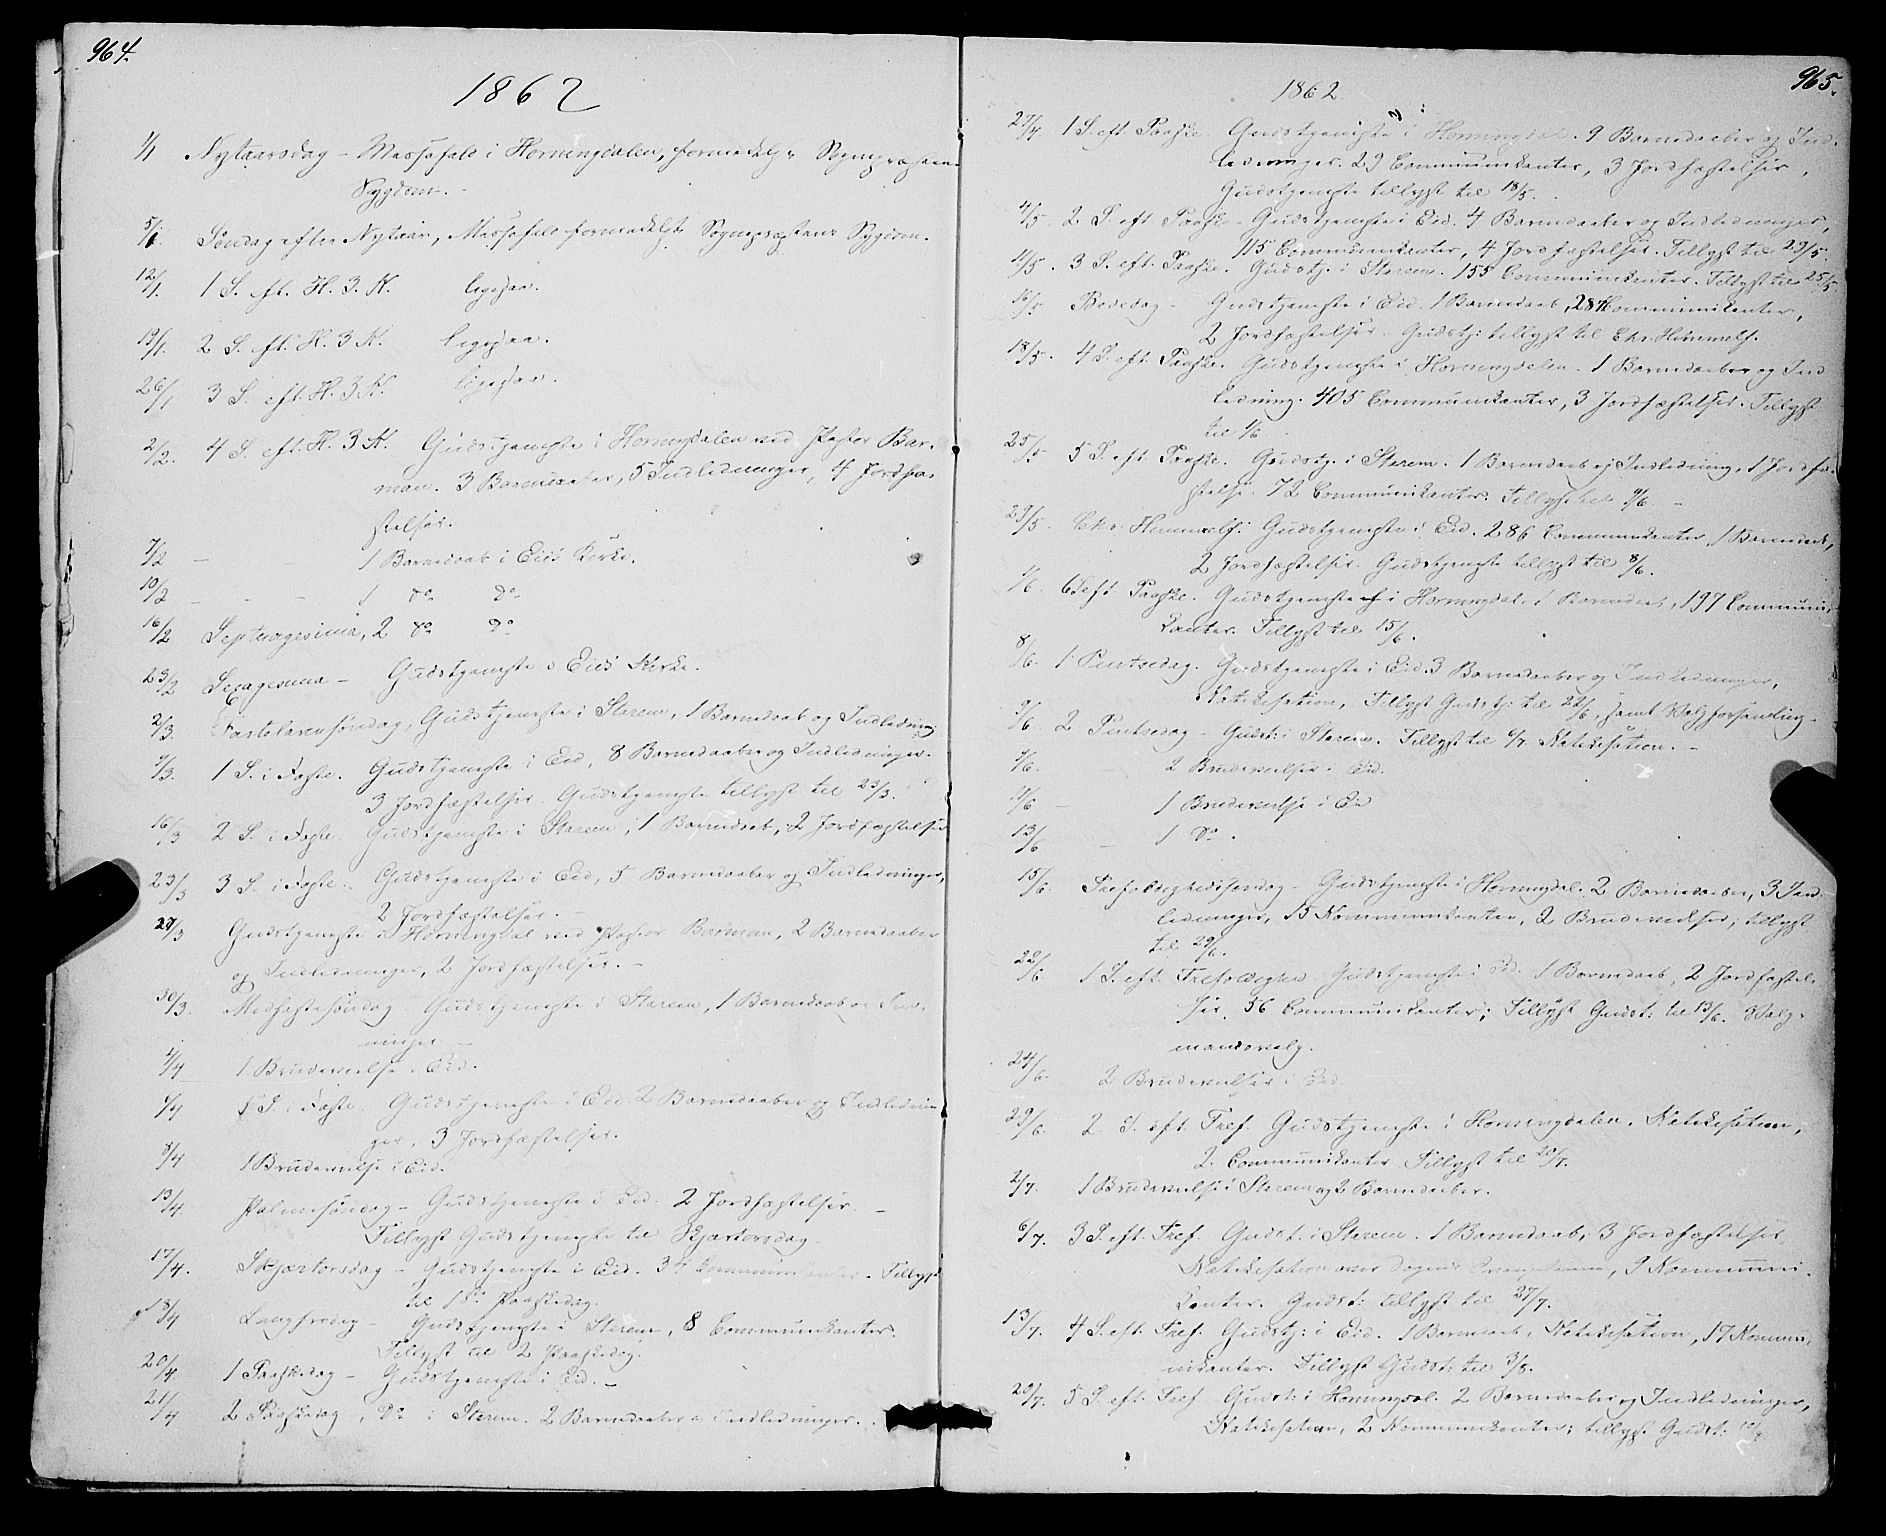 964.
1862
1/1 Nytaarsdag - Messefald i Horningdalen, formedelst Sogneprestens
Sygdom. -
5/1. Søndag efter Nytaar, Messefald formedelst Sogneprestens Sygdom.
12/1. 1 S. eft. H. 3. K. ligesaa.
19/1. 2 S. eft. H. 3 K. ligesaa.
26/1 3 S. eft. H. 3 K. ligesaa.
2/2. 4 S. eft. H. 3 K. Gudstjeneste i Horningdalen ved Pastor Bar-
man. 3 Barnedaaber, 5 Indledninger, 4 Jordfæ-
stelser.
7/2 - - 1 Barnedaab i Eids Kirke.
10/2 - - - 1 do do
16/2 Septuagesima, 2 do do
23/2 Sexagesima - Gudstjeneste i Eids Kirke.
2/3. Fastelavnsøndag, Gudstjeneste i Starem, 1 Barnedaab og Indledning
9/3. 1 S. i Faste. Gudstjeneste i Eid, 8 Barnedaaber og Indledninger.
3 Jordfæstelser. Gudstjeneste tillyst til 23/3.
16/3 2 S. i Faste. Gudstjeneste i Starem, 1 Barnedaab, 2 Jordfæstelser
23/3 3 S. i Faste. Gudstjeneste i Eid, 5 Barnedaaber og Indledninger,
2 Jordfæstelser. -
27/3 Gudstjeneste i Horningdal ved Pastor Barman, 2 Barnedaaber
og Indledninger, 2 Jordfæstelser. -
30/3. Midfastesøndag - Gudstjeneste i Starem, 1 Barnedaab og Ind-
ninger -
4/4 1 Brudevielse i Eid.
6/4 5 S. i Faste. Gudstjeneste i Eid 2 Barnedaaber og Indlednin
ger, 3 Jordfæstelser.
8/4 1 Brudevielse i Eid.
13/4. Palmesøndag - Gudstjeneste i Eid. 2 Jordfæstelser. -
Tillyst Gudstjeneste til Skjærtorsdag.
17/4. Skjærtorsdag - Gudstjeneste i Eid. 34 Communikanter. Tillyst
til 1ste Paaskedag.
18/4 Langfredag - Gudstjeneste i Starem, 8 Communikanter.
Tillyst til 2 Paaskedag.
20/4 1 Paaskedag - Gudstjeneste i Eid. -
21/4 2 Paaskedag, do i Starem. 2 Barnedaaber og Indledninger.
965.
1862
27/4 1 S. eft. Paaske. Gudstjeneste i Horningdal. 9 Barnedaaber og Ind-
ledninger. 29 Communikanter, 3 Jordfæstelser,
Gudstjeneste tillyst til 18/5.
4/5. 2 S. eft. Paaske - Gudstjeneste i Eid. 4 Barnedaaber og Indledninger,
115 Communikanter, 4 Jordfæstelser. Tillyst til 29/5.
11/5. 3 S. eft. Paaske. Gudstj. i Starem. 155 Communikanter. Tillyst til 25/5.
16/5 Bededag - Gudstjeneste i Eid. 1 Barnedaab, 284 Kommunikanter,
2 Jordfæstelser. Gudstj: tillyst til Chr. Himmelf.
18/5. 4 S. eft. Paaske. Gudstjeneste i Horningdalen. 1 Barnedaaber og Ind
ledning. 405 Communikanter, 3 Jordfæstelser. Tillyst
til 1/6
25/5 5 S. eft. Paaske. Gudstj. i Starem. 1 Barnedaab og Indledning, 1 Jordfæ-
stelse. 72 Communikanter. Tillyst til 9/6. -
29/5. Chr. Himmelf: Gudstjeneste i Eid. 286 Communikanter, 1 Barnedaab,
2 Jordfæstelser. Gudstjeneste tillyst til 8/6.
1/6. 6 S. eft. Paaske. Gudstjeneste i Horningdal. 1 Barnedaab, 197 Communi-
kanter. Tillyst til 15/6.
8/6. 1 Pintsedag. Gudstjeneste i Eid. 3 Barnedaaber og Indledninger,
Katekisation, Tillyst Gudstj: til 22/6, samt Valgforsamling.
9/6. 2 Pintsedag - Gudst: i Starem. Tillyst til 6/7. Katekisation. -
9/6. - 2 Brudevielser i Eid.
11/6 - 1 Brudevielse i Eid
13/6 - 1 do.
15/6. Trefoldighedssøndag - Gudstjeneste i Horningdal. 2 Barnedaaber, 3 Ind-
ledninger, 15 Kommunikanter, 2 Brudevielser; tillyst
til 29/6.
22/6 1 S. eft. Trefoldighed Gudstjeneste i Eid. 1 Barnedaab, 2 Jordfæstel-
ser, 56 Communikanter; Tillyst Gudst: til 13/6. Valg-
mandsvalg.
24/6. 2 Brudevielser i Eid.
29/6. 2. S. eft. Tref. Gudstjeneste i Horningdalen. Katekisation,
2 Communikanter. Tillyst til 20/7.
2/7. 1 Brudevielse i Starem og 2 Barnedaaber.
6/7. 3 S. eft. Tref. Gudst: i Starem. 1 Barnedaab, 3 Jordfæstelser
Katekisation over Dagens Evangelium, 9 Kommuni-
kanter. Gudst: tillyst til 27/7.
13/7. 4 S. eft. Tref. Gudstj: i Eid. 1 Barnedaab, Katekisation, 17 Kommu-
nikanter. Tillyst Gudst: til 3/8.
20/7. 5 S. eft. Tref. Gudst: i Horningdal. 2 Barnedaaber og Indledninger,
Katekisation, 2 Kommunikanter; tillyst Gudst: 10/8